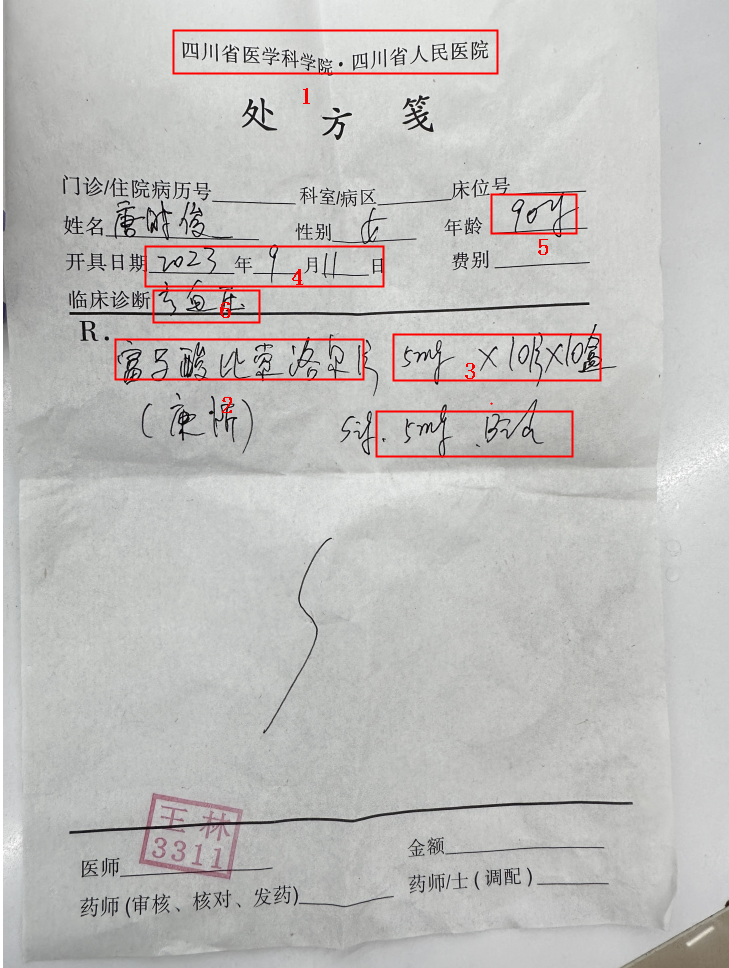 四川省医学科学院·四川省人民医院
1
处方笺
门诊/住院病历号 科室/病区 床位号
姓名 唐时俊 性别 女 年龄 90岁
5
开具日期 2023 年 9 月 11 日 费别
4
临床诊断 高血压
6
R.
富马酸比索洛尔片 5mg × 10片×10盒
3
2
(康忻) Sig. 5mg
王林
3311
医师 金额
药师(审核、核对、发药) 药师/士(调配)